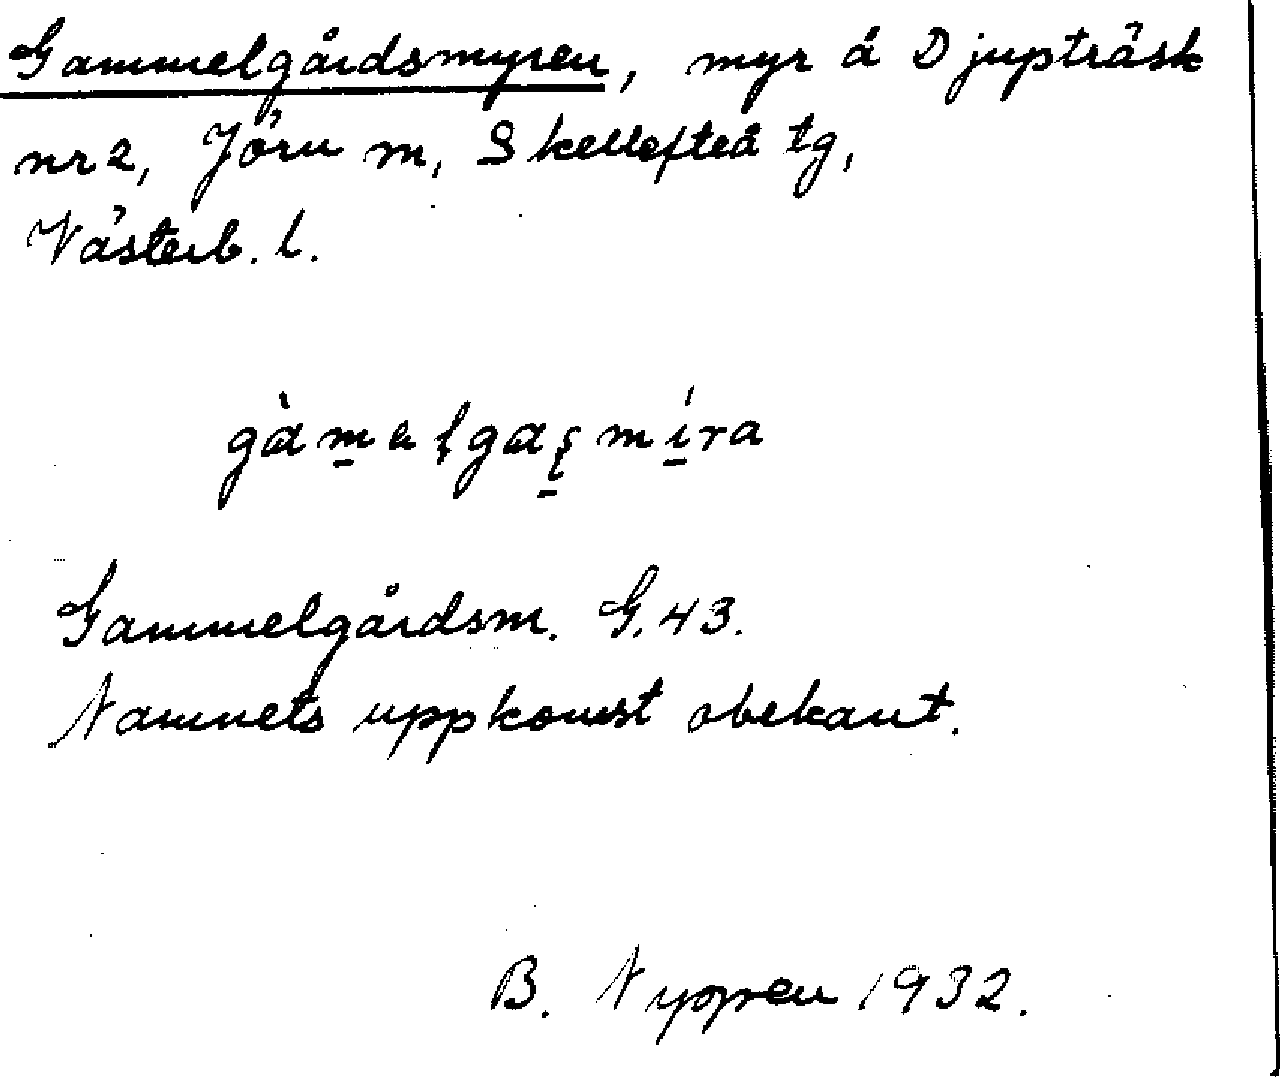 Gammelgårdsmyren, myr å Djupträsk
nr 2, Jörn m, Skellefteå tg,
Västerb. l.
Gammelgårdsm. G. 43.
Namnets uppkomst obekant.
B. Nygren 1932.